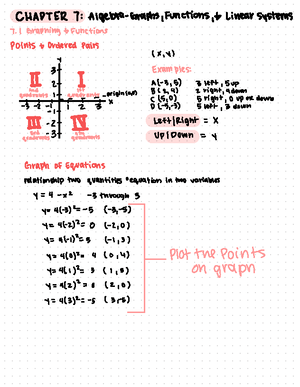 CHAPTER 7: Algebra-Graphs, Functions, & Linear Systems
7.1 Graphing & Functions
Points & Ordered Pairs
(x, y)
Examples:
A(-3, 5) 3 left, 5 up
B(2, 4) 2 right, 4 down
C(5, 0) 5 right, 0 up or down
D(-5,-3) 5 left, 3 down
Left/Right = X
Up/Down = Y
y
II I
2nd quadrants 1st quadrants
origin (0,0)
-3 -2 -1 1 2 3 x
III IV
3rd quadrants 4th quadrants
Graph of Equations
relationship two quantities = equation in two variables
y = 4 - x² -3 through 3
y = 4(-3)² = -5 (-3,-5)
y = 4(-2)² = 0 (-2,0)
y = 4(-1)² = 3 (-1,3)
y = 4(0)² = 4 (0,4)
y = 4(1)² = 3 (1,3)
y = 4(2)² = 0 (2,0)
y = 4(3)² = -5 (3,-5)
Plot the Points
on graph